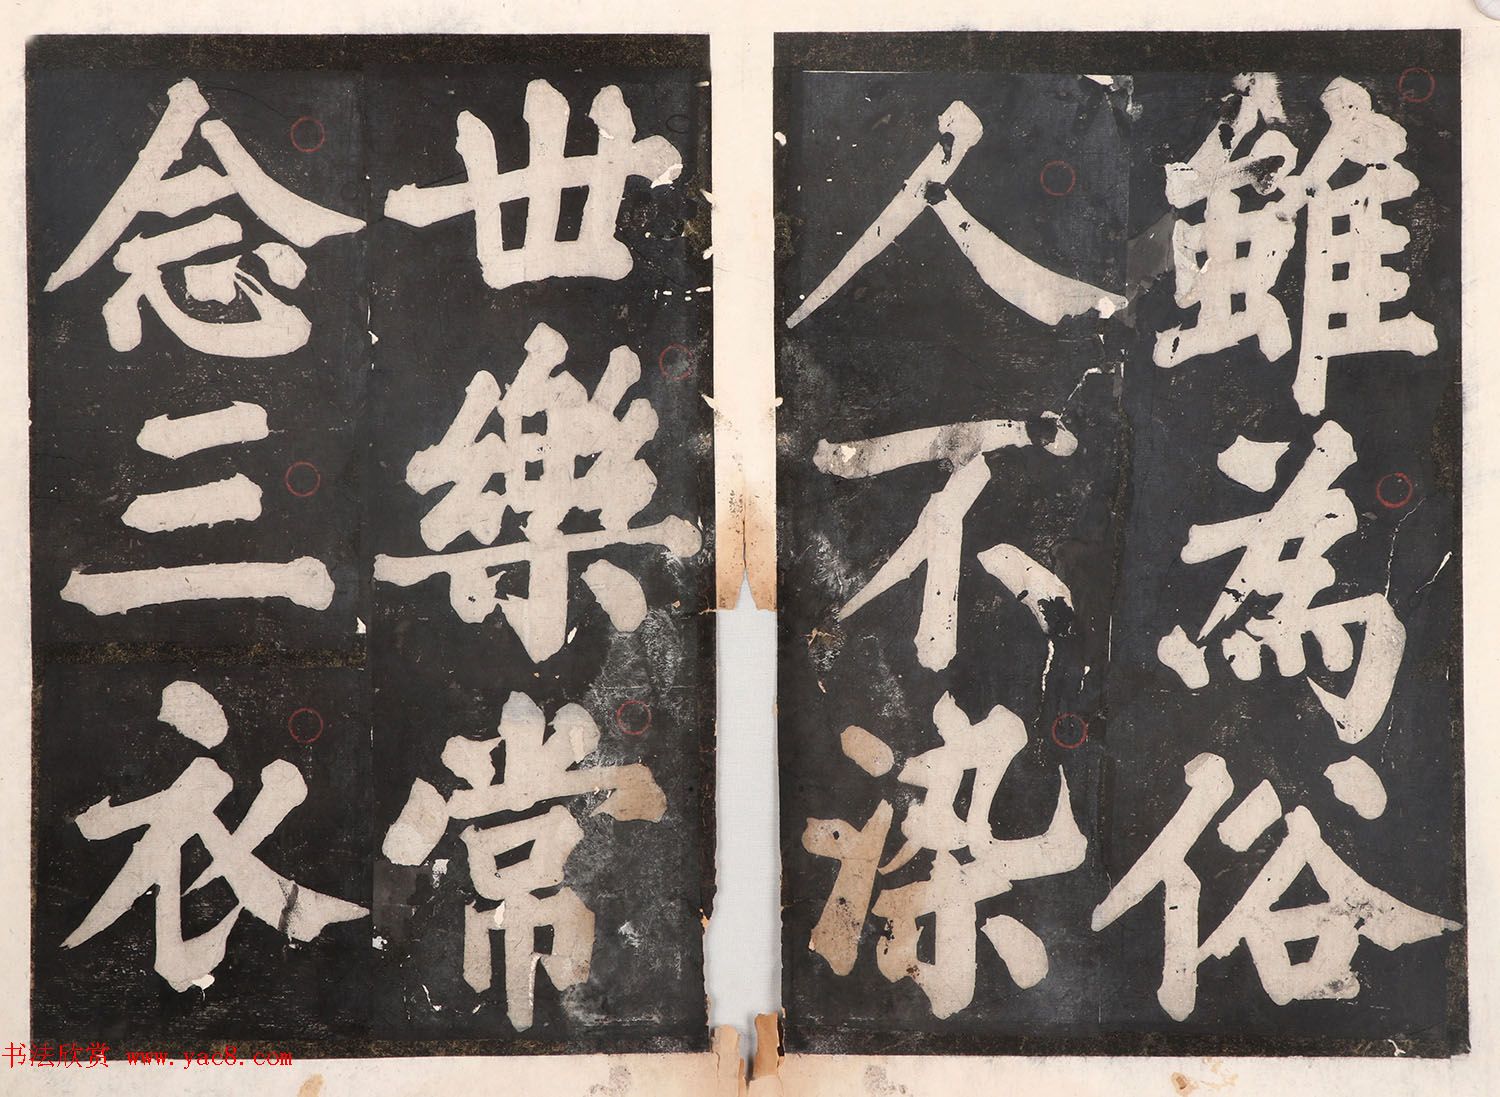 雖為俗
人不染
丗樂常
念三衣
书法欣赏 www.yac8.com